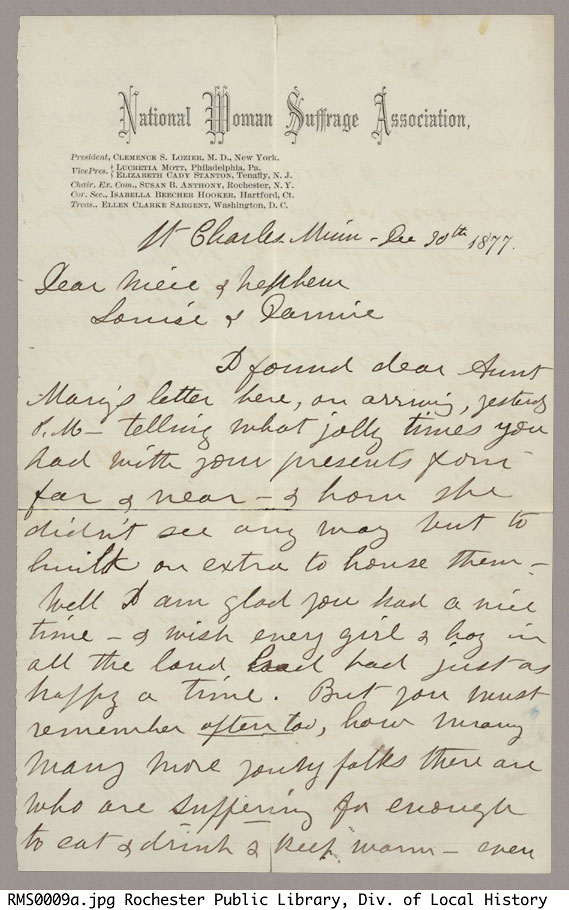 National Woman Suffrage Association,
President, CLEMENCE S. LOZIER, M. D., New York.
Vice Pres. { LUCRETIA MOTT, Philadelphia, Pa.
ELIZABETH CADY STANTON, Tenafly, N. J.
Chair. Ex. Com., SUSAN B. ANTHONY, Rochester, N. Y.
Cor. Sec., ISABELLA BEECHER HOOKER, Hartford, Ct.
Treas., ELLEN CLARKE SARGENT, Washington, D. C.
St Charles Minn - Dec 30th 1877.
Dear Niece & Nephew
Louise &
I found dear Aunt
Mary's letter here, on arriving, yesterday
P. M - telling what jolly times you
had with your presents from
far & near - & how she
didn't see any way but to
build an extra to house them -
Well I am glad you had a nice
time - & wish every girl & boy in
all the land had had just as
happy a time. But you must
remember often too, how many
many more young folks there are
who are suffering for enough
to eat & drink & keep warm - even
RMS0009a.jpg Rochester Public Library, Div. of Local History